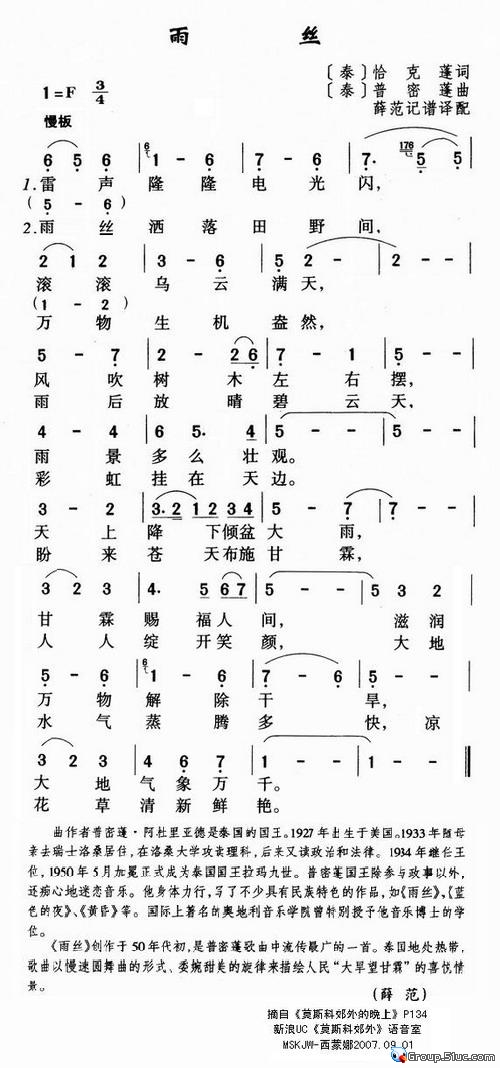 雨 丝
〔泰〕恰 克 蓬词
〔泰〕普 密 蓬曲
薛范记谱译配
1=F 3/4
慢板
6 5 6 | 6 1 - 6 | 7 - 6 | 7. 176 5 5 |
1.雷 声 隆 隆 电 光 闪,
( 5 - 6 )
2.雨 丝 洒 落 田 野 间,
2 1 2 | 3 - 6 | 5 - 2 | 2 - - |
滚 滚 乌 云 满 天,
(1 - 2)
万 物 生 机 盎 然,
5 - 7 | 2 - 2 6 | 7 - 1 | 5 - - |
风 吹 树 木 左 右 摆,
雨 后 放 晴 碧 云 天,
4 - 4 | 6 5. 4 | 5 - - | 5 - - |
雨 景 多 么 壮 观。
彩 虹 挂 在 天 边。
3 - 2 | 3. 2 1 2 3 4 | 5 - 7 | 7 - - |
天 上 降 下倾盆 大 雨,
盼 来 苍 天布施 甘 霖,
3 2 3 | 4. 5 6 7 | 5 - - | 5 3 2 |
甘 霖 赐 福人 间, 滋 润
人 人 绽 开笑 颜, 大 地
5 - 6 | 6 1 - 6 | 7 - 6 | 7 - - |
万 物 解 除 干 旱,
水 气 蒸 腾 多 快,凉
3 2 3 | 4 6 7 | 5 - - | 5 - - ‖
大 地 气 象 万 千。
花 草 清 新 鲜 艳。
曲作者普密蓬·阿杜里亚德是泰国的国王。1927年出生于美国。1933年随母
亲去瑞士洛桑居住,在洛桑大学攻读理科,后来又读政治和法律。1934年继任王
位,1950年5月加冕正式成为泰国国王拉玛九世。普密蓬国王除参与政事以外,
还痴心地迷恋音乐。他身体力行,写了不少具有民族特色的作品,如《雨丝》、《蓝
色的夜》、《黄昏》等。国际上著名的奥地利音乐学院曾特别授予他音乐博士的学
位。
《雨丝》创作于50年代初,是普密蓬歌曲中流传最广的一首。泰国地处热带,
歌曲以慢速圆舞曲的形式、委婉甜美的旋律来描绘人民“大旱望甘霖”的喜悦情
景。
(薛 范)
摘自《莫斯科郊外的晚上》P134
新浪UC《莫斯科郊外》语音室
MSKJW-西蒙娜2007.09.01
Group.51uc.com